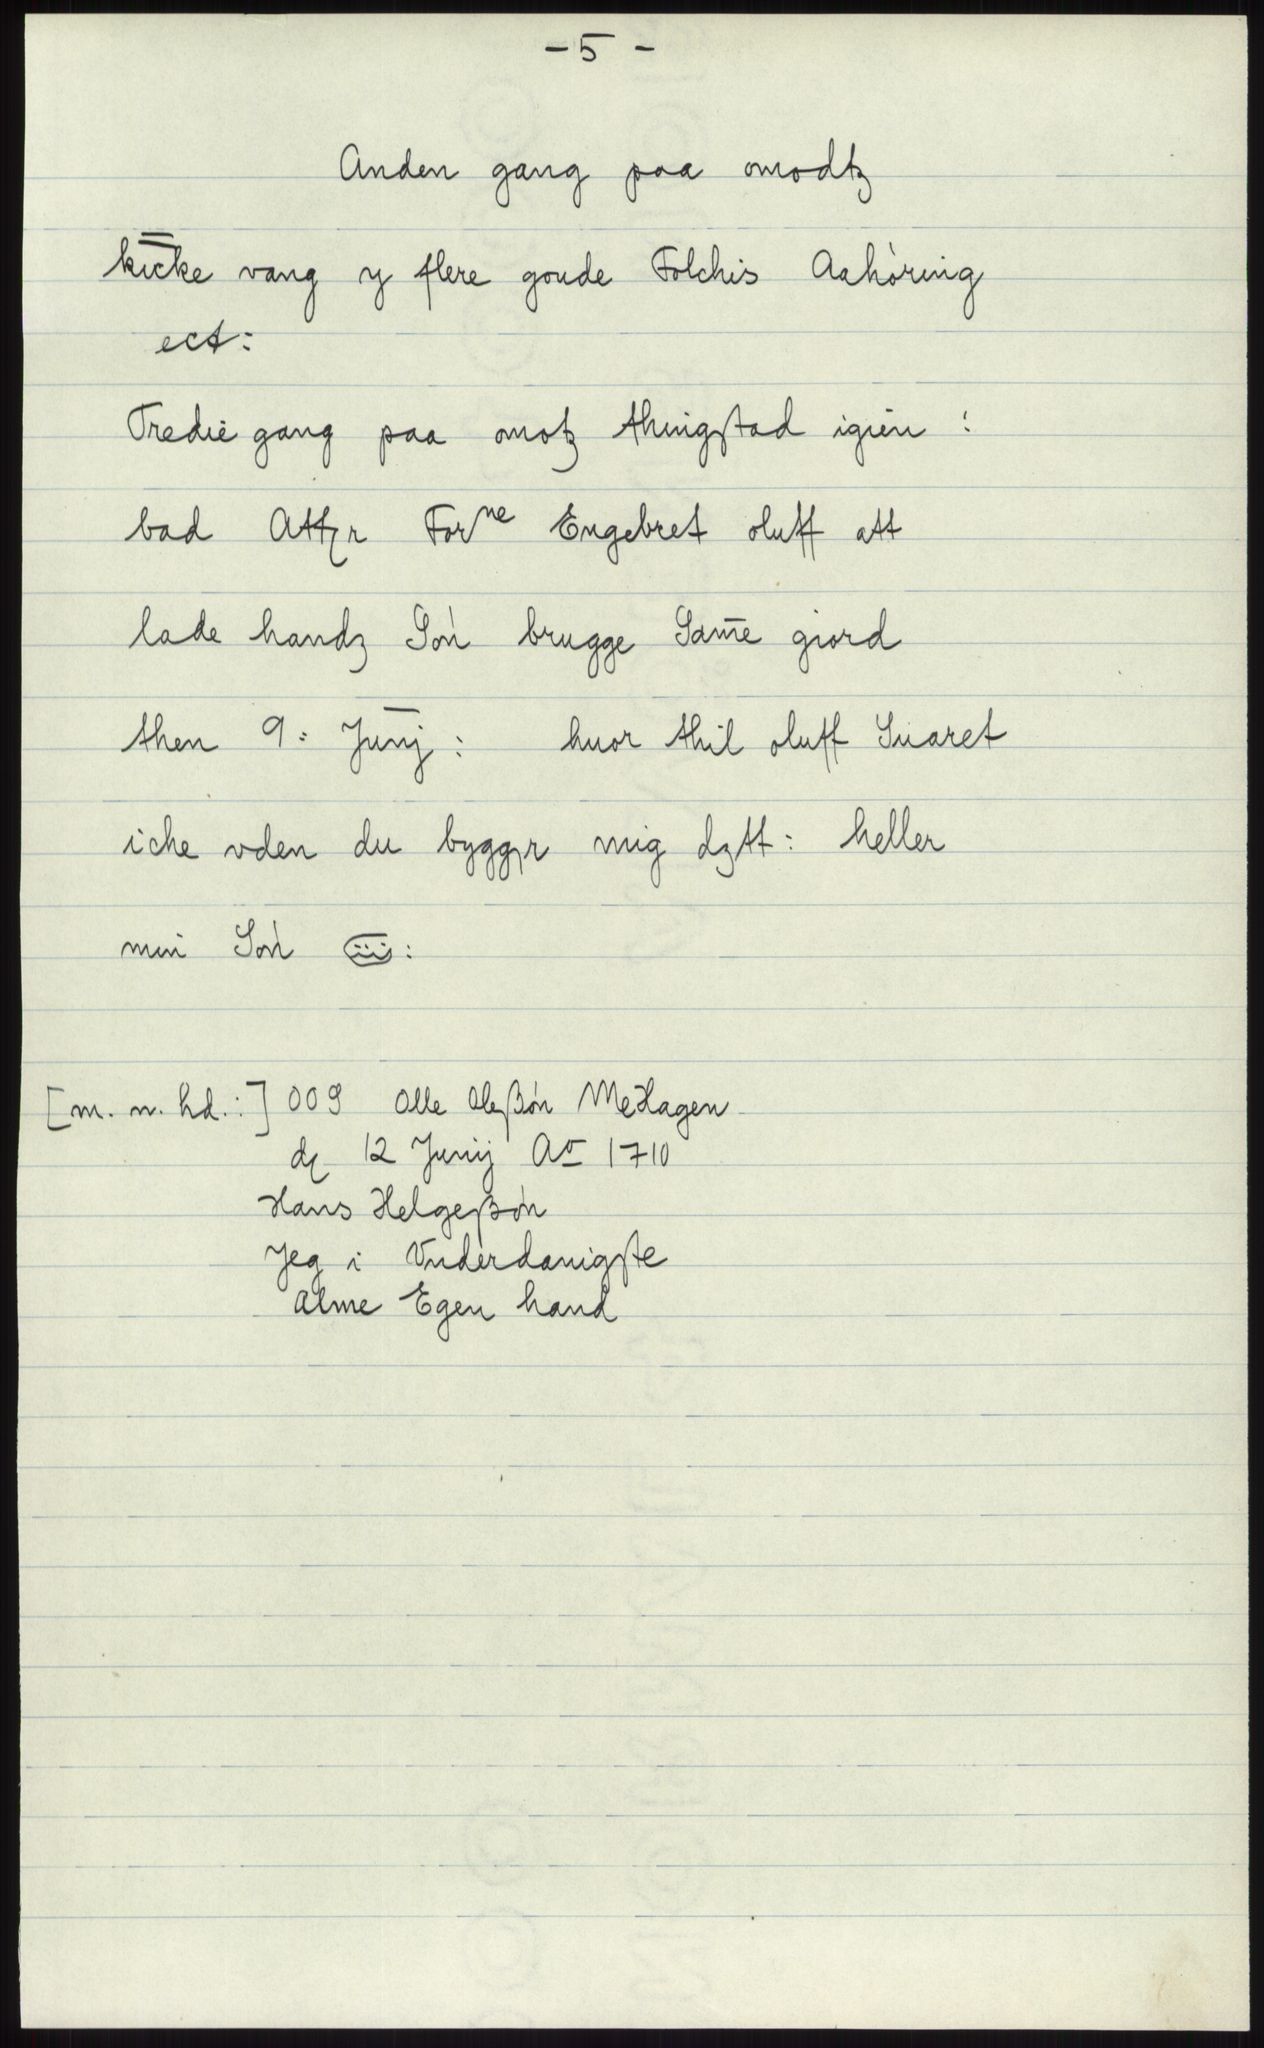 - 5 -
Anden gang paa omodtz
kicke vang y flere goude Folchis Aahöring
ect:
Tredie gang paa omotz thingstad igien :
bad Forne Engebret oluff att
lade handz Sön brugge Same giord
then 9: Junj: huor thil oluff Suaret
iche vden du mig : heller
min Sön
[m. n. hd.:] 009 Olle Oleßön MeHagen
12 Junij Ao 1710
Hans Helgeßön
Jeg i Vnderdanigste
Alme Egen hand